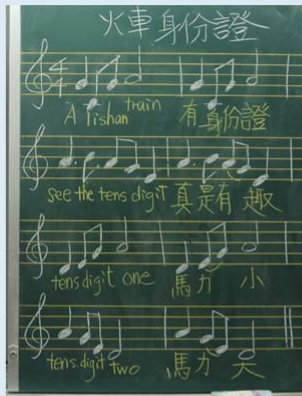 火車身份證
A lishan train 有身份證
see the tens digit 真是有趣
tens digit one 馬力小
tens digit two 馬力大